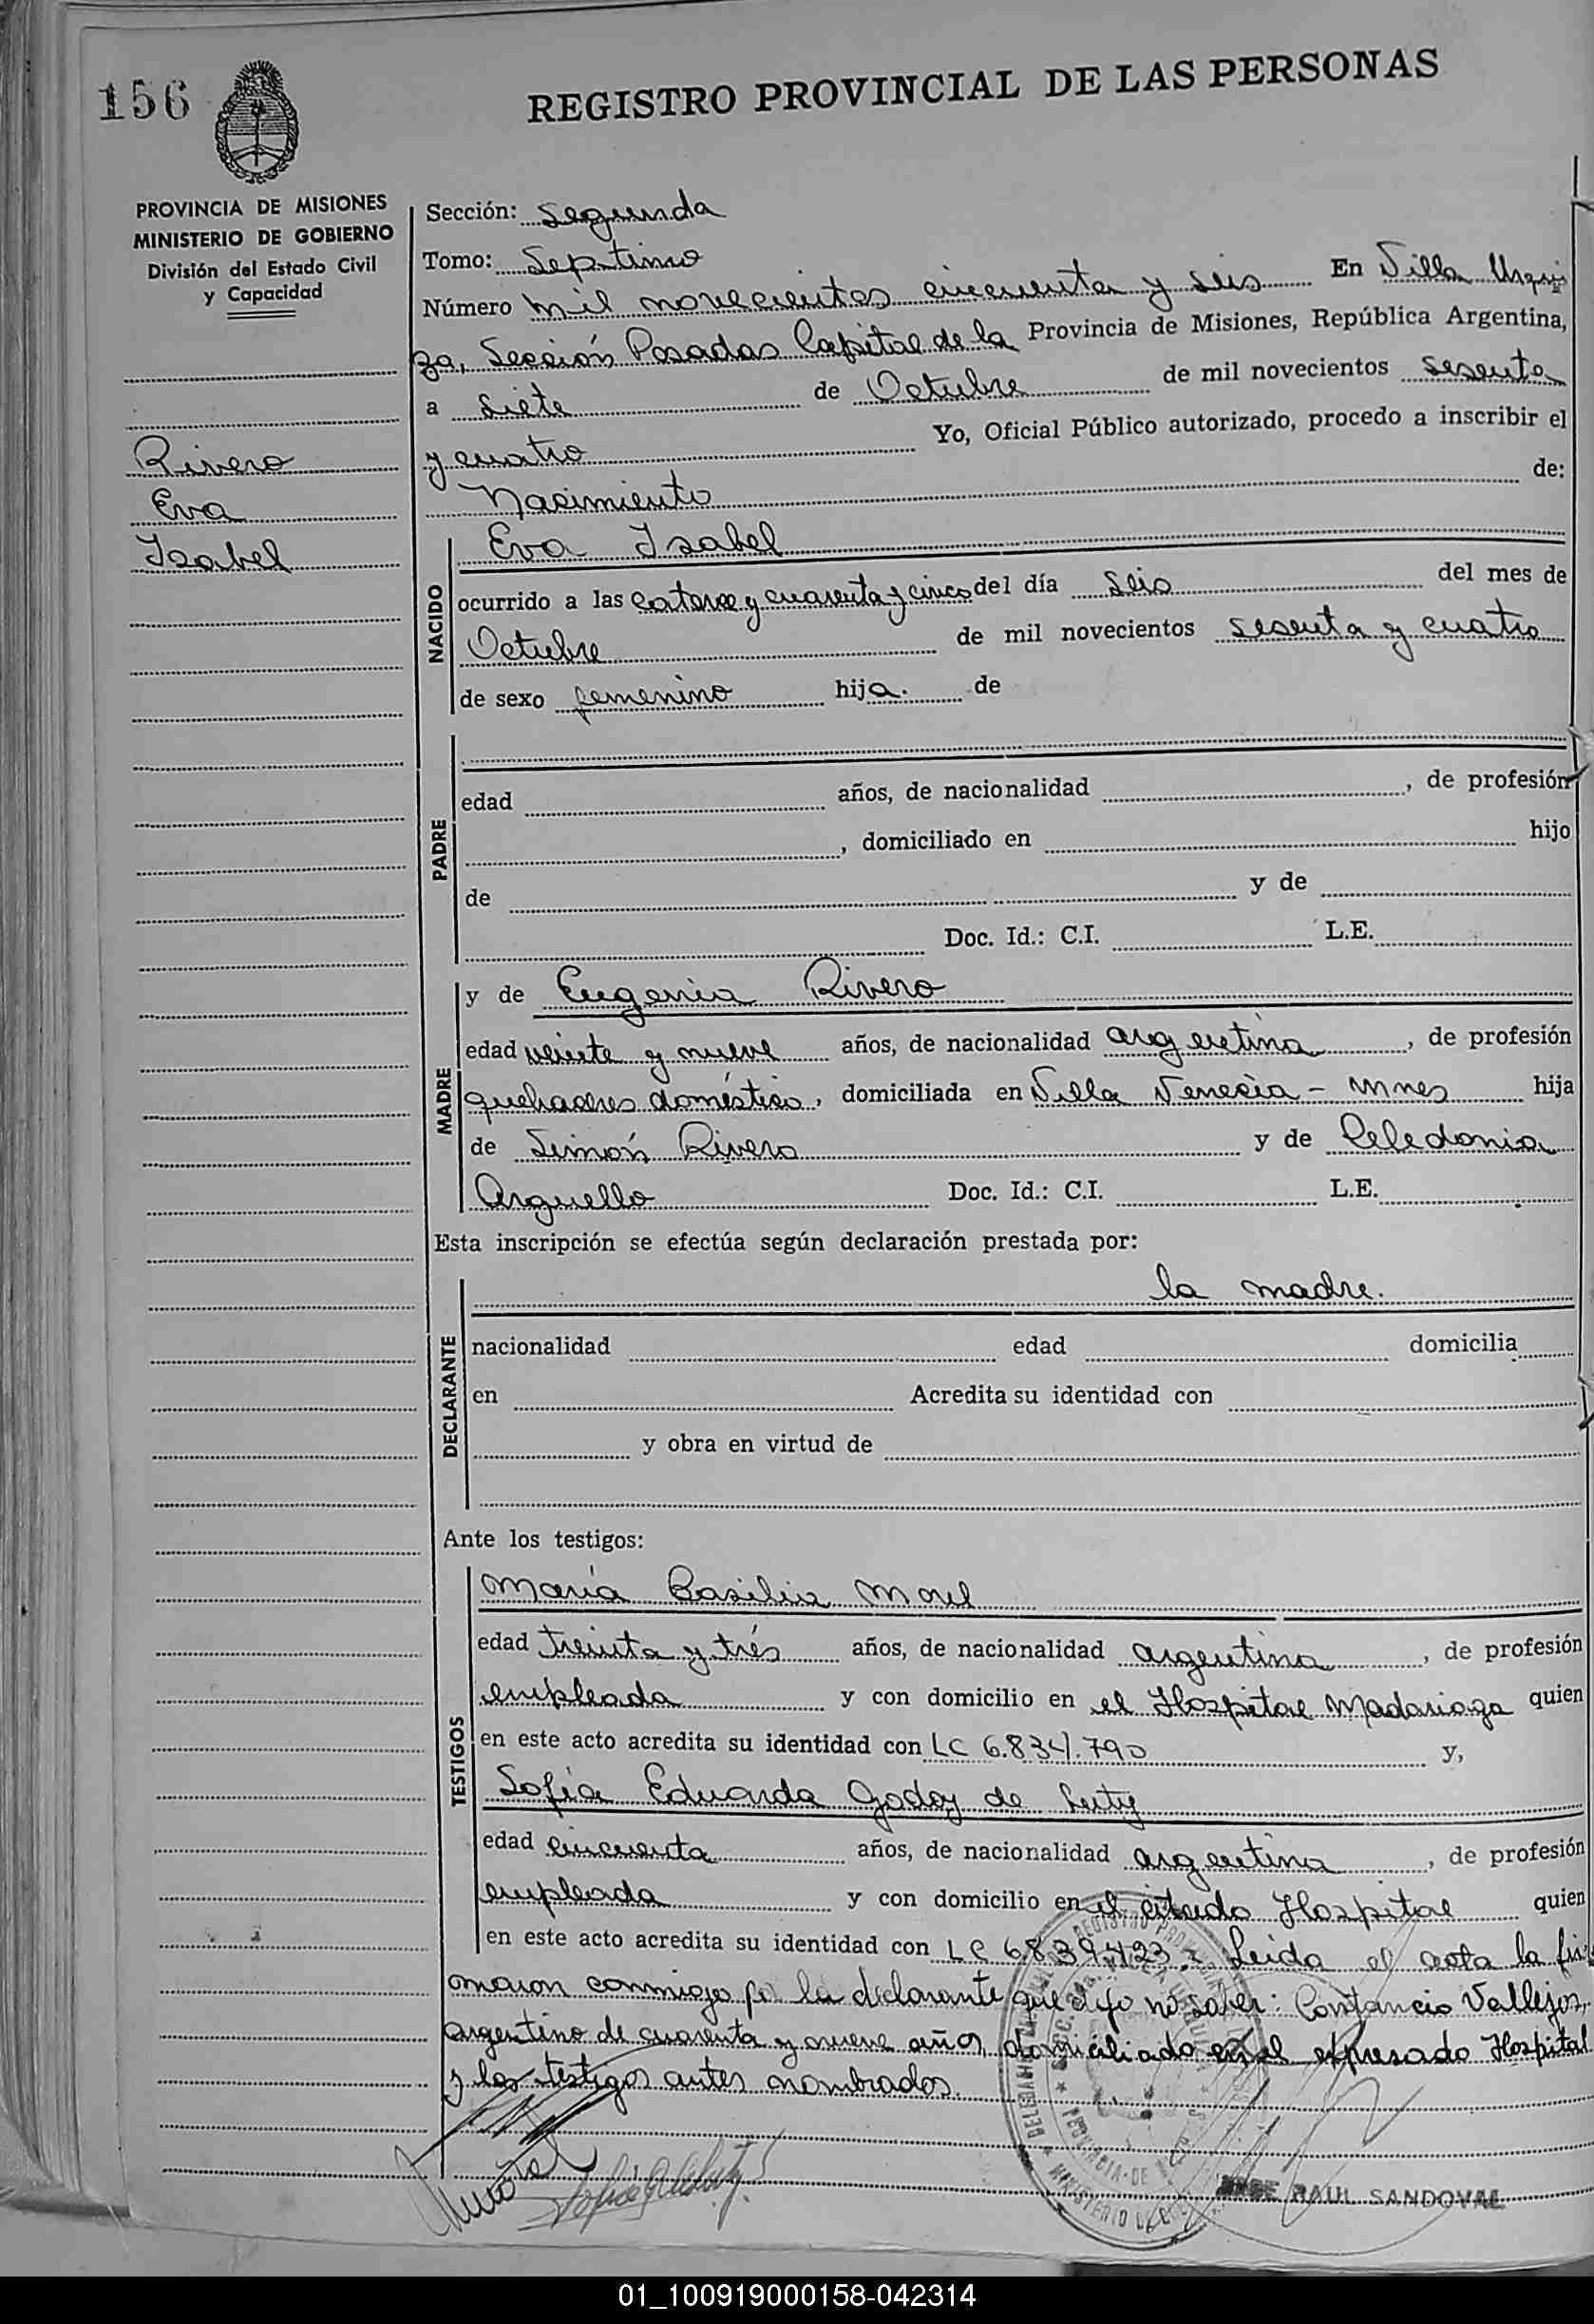 156
REGISTRO PROVINCIAL DE LAS PERSONAS
PROVINCIA DE MISIONES
MINISTERIO DE GOBIERNO
División del Estado Civil
y Capacidad
Rivero
Eva
Isabel
Sección: Segunda
Tomo: Septimo
Número mil novecientos cincuenta y seis En Villa Urqui
za, Sección Posadas Capital de la Provincia de Misiones, República Argentina,
a siete de Octubre de mil novecientos sesenta
y cuatro Yo, Oficial Público autorizado, procedo a inscribir el
Nacimiento de:
NACIDO
Eva Isabel
ocurrido a las catorce y cuarenta y cinco del día seis del mes de
Octubre de mil novecientos sesenta y cuatro
de sexo femenino hija. de
PADRE
edad años, de nacionalidad , de profesión
, domiciliado en hijo
de y de
Doc. Id.: C.I. L.E.
MADRE
y de Eugenia Rivero
edad veinte y nueve años, de nacionalidad argentina, de profesión
quehaceres domésticos, domiciliada en Villa Venecia - Mnes hija
de Simón Rivero y de Celedonia
Arguello Doc. Id.: C.I. L.E.
Esta inscripción se efectúa según declaración prestada por:
DECLARANTE
la madre.
nacionalidad edad domicilia
en Acredita su identidad con
y obra en virtud de
Ante los testigos:
TESTIGOS
María Basilia Morel
edad treinta y trés años, de nacionalidad argentina, de profesión
empleada y con domicilio en el Hospital Madariaga quien
en este acto acredita su identidad con LC 6.834.790 y,
Sofía Eduarda Godoy de
edad cincuenta años, de nacionalidad argentina, de profesión
empleada y con domicilio en el citado Hospital quien
en este acto acredita su identidad con LC 6.839.423. Leida el acta la fir
maron conmigo por la declarante que dijo no saber: Constancio Vallejos,
argentino de cuarenta y nueve años, domiciliado en el expresado Hospital
y los testigos antes nombrados.
JOSE RAUL SANDOVAL
01_100919000158-042314